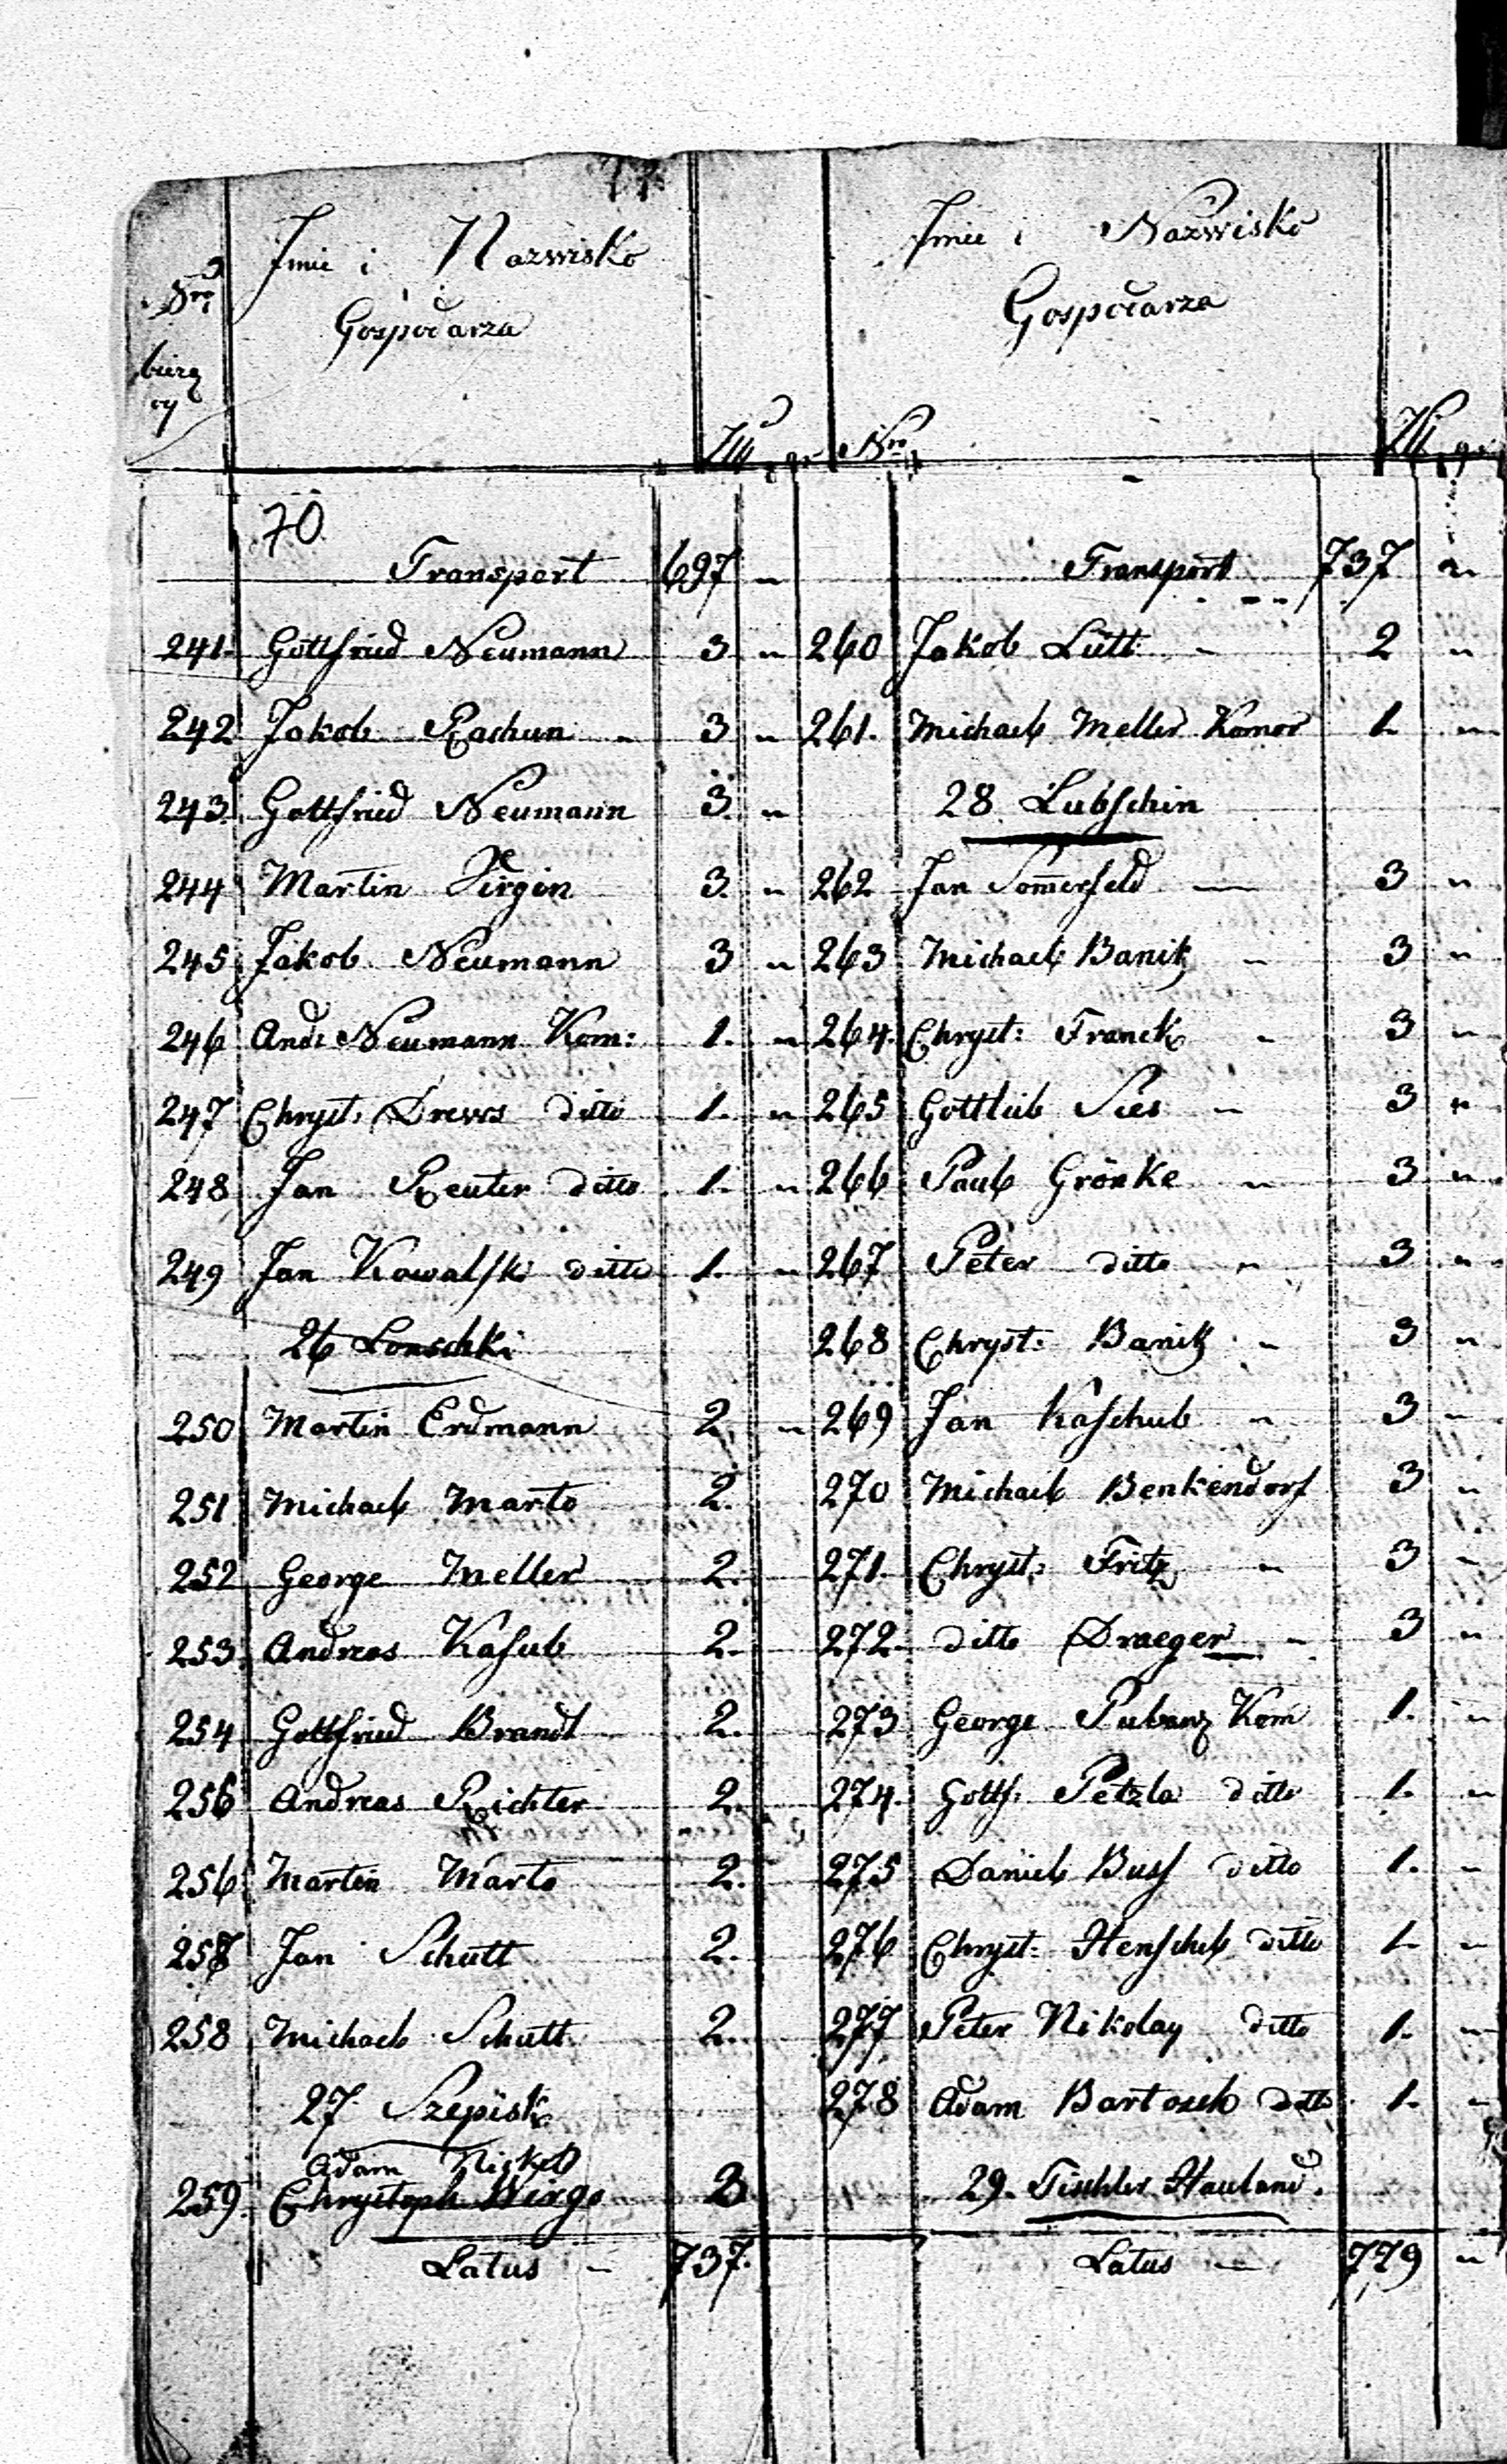 Nro
bierz
cy
Imie i Nazwisko
Gospodarza
Zł gr
Nro
Imie i Nazwisko
Gospodarza
Zł gr
70
Transport 697 "
241. Gottfried Neumann 3 "
242 Jakob Rachun " 3 "
243. Gottfried Neumann 3. "
244 Martin Virgin 3. "
245 Jakob Neumann 3 "
246 And: Neumann Kom: 1. "
247 Chryst: Drews ditto 1. "
248 Jan Reuter ditto 1. "
249 Jan Kowalski ditto 1. "
26 Lonschki
250 Martin Erdmann 2. "
251 Michael Marto 2.
252 George Meller 2.
253. Andreas Kasub 2.
254 Gottfried Brandt 2.
256 Andreas Richter 2.
256 Martin Marto 2.
257 Jan Schutt 2.
258 Michael Schutt 2.
27. Szepisk
Adam Nickel
259. Chrystoph Wirgo 3
Latus - 737.
Transport 737 "
260 Jakob Lütt - 2 "
261. Michael Meller Komor 1. "
28. Lubschin
262 Jan Som̅erfeld — 3 "
263 Michael Banitz - 3 "
264. Chryst: Franck - 3 "
265 Gottlieb Sies - 3 "
266 Paul Grönke " 3 "
267 Peter ditto " 3 "
268 Chryst: Banitz - 3 "
269 Jan Kaschub " 3 "
270 Michael Benkendorf 3 "
271. Chryst: Fritz - 3 "
272. ditto Draeger - 3 "
273 George Pubanz Kom 1. "
274. Gottf: Petzla ditto 1. "
275 Daniel Buss ditto 1. "
276 Chryst: Henschel ditto 1. "
277 Peter Nikolay ditto 1. "
278 Adam Bartosch ditto 1. "
29. Tischler Hauland.
Latus — 779 "